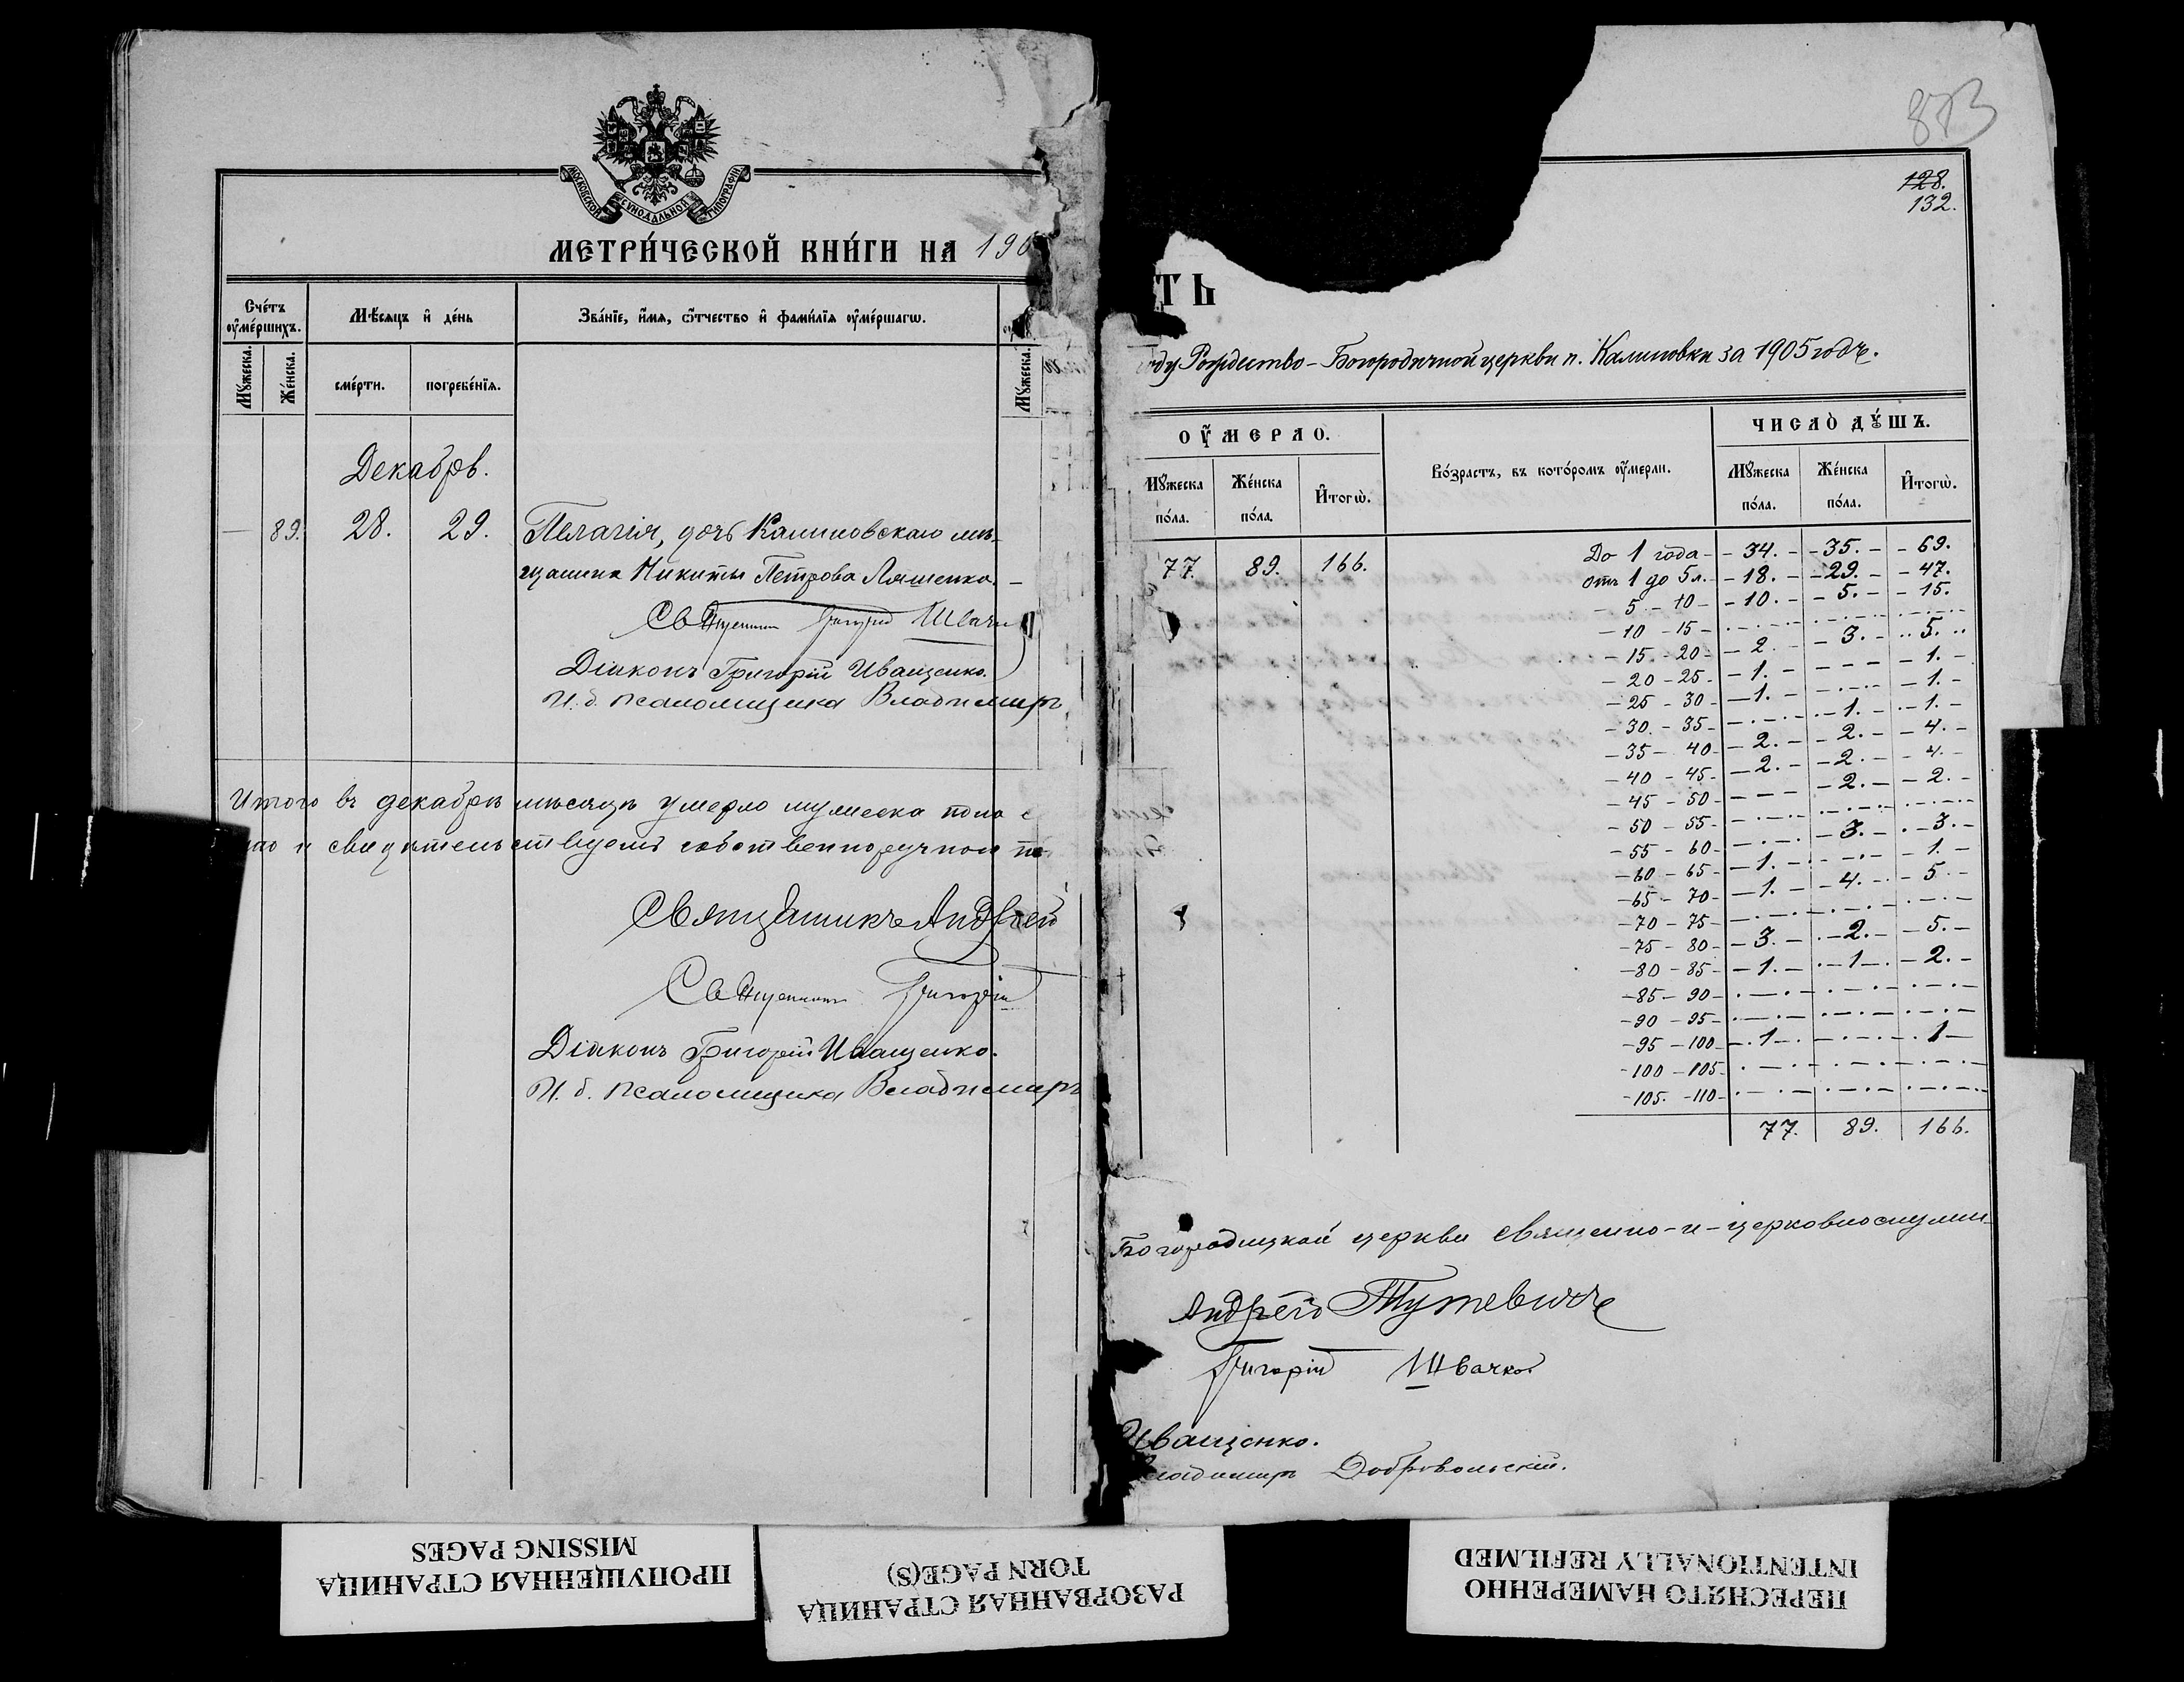 МОСКОВСКОЙ СУНОДАЛЬНОЙ ТИПОГРАФІИ
МЕТРИ́ЧЕСКОЙ КНИ́ГИ НА 190
Сче́тъ оу҆ме́ршихъ.
Мѣ́сяцъ и҆ де́нь
Зва́нїе, и҆́мѧ, ѻ҆́тчество и҆ фами́лїѧ оу҆ме́ршагѡ.
Мꙋ́жеска.
Же́нска.
сме́рти.
погребе́нїѧ.
Мꙋ́жеска.
Декабрь.
— 89. 28. 29. Пелагія, дочь Калиновскаго мѣ-
щанина Никиты Петрова Ляшенко. –
Священникъ Григорій Швачк
Діаконъ Григорій Иващенко.
И. д. псаломщика Владимиръ
Итого въ декабрѣ мѣсяцѣ умерло мужеска пола
и свидѣтельствуемъ собственноручною по
Священникъ Андрей
Священникъ Григорій
Діаконъ Григорій Иващенко.
И. д. псаломщика Владимиръ
873
128.
132.
ТЬ
Рождество-Богородичной церкви п. Калиновки за 1905 годъ.
ОУ҆́МЕРЛО.
Во́зрастъ, въ кото́ромъ оу҆́мерли.
ЧИСЛО̀ ДꙊ́ШЪ.
Мꙋ́жеска по́ла.
Же́нска по́ла.
И҆тогѡ̀.
Мꙋ́жеска по́ла.
Же́нска по́ла.
И҆тогѡ̀.
77. 89. 166.
До 1 года - - 34. - - 35. - - 69.
отъ 1 до 5 л. - - 18. - - 29. - - 47.
- 5 - 10 - - 10. - - 5. - - 15.
- 10 - 15 -
- 15 - 20 - - 2. - 3. - 5.
- 20 - 25 - - 1. - - - - 1. -
- 25 - 30 - 1. - - 1. -
- 30 - 35 - - 1. - - 1. -
- 35 - 40 - - 2. - - 2. - - 4. -
- 40 - 45 - - 2. - - 2. - - 4. -
- 45 - 50 - - - - 2. - - 2. -
- 50 - 55 -
- 55 - 60 - - 3. - - 3. -
- 60 - 65 - - 1. - - 1. -
- 65 - 70 - - 1. - - 4. - - 5. -
- 70 - 75 -
- 75 - 80 - - 3. - - 2. - - 5. -
- 80 - 85 - - 1. - - 1 - - 2. -
- 85 - 90 -
- 90 - 95 -
- 95 - 100 - 1 - 1 -
- 100 - 105 -
- 105. - 110 -
77. 89. 166.
Богородицкой церкви священно-и-церковнослужи-
Андрей Тутевичъ
Григорій Швачко
Иващенко.
Владимиръ Добровольскій.
ПРОПУЩЕННАЯ СТРАНИЦА
MISSING PAGES
РАЗОРВАННАЯ СТРАНИЦА
TORN PAGE(S)
ПЕРЕСНЯТО НАМЕРЕННО
INTENTIONALLY REFILMED